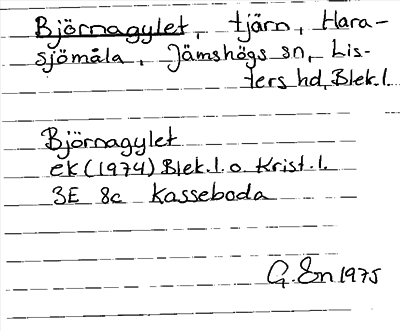 Björnagylet, tjärn, Hara-
sjömåla, Jämshögs sn, Lis-
ters hd, Blek.l.
Björnagylet
ek (1974) Blek.l. o. Krist.l.
3E 8c Kasseboda
G. En 1975